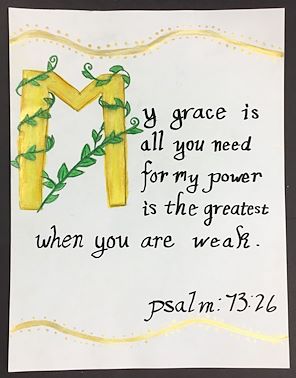 My grace is
all you need
for my power
is the greatest
when you are weak.
psalm:73:26